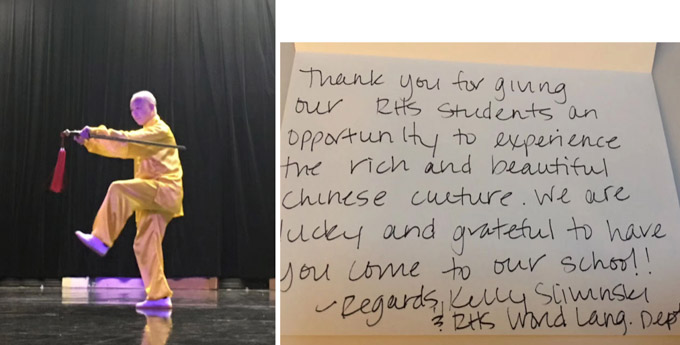 Thank you for giving
our RHS students an
opportunity to experience
the rich and beautiful
Chinese culture. We are
lucky and grateful to have
you come to our school!!
~Regards, Kelly Sliwinski
& RHS World Lang. Dept